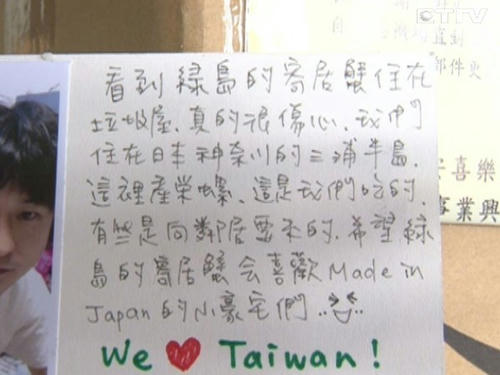 看到綠島的寄居蟹住在
垃圾屋、真的很傷心、我們
住在日本神奈川的三浦半島、
這裡產榮螺、這是我們吃的、
有些是向鄰居要來的、希望綠
島的寄居蟹會喜歡Made in
Japan的小豪宅們
We ❤ Taiwan!
CTTV
自
直到
部件更
喜樂
事業興